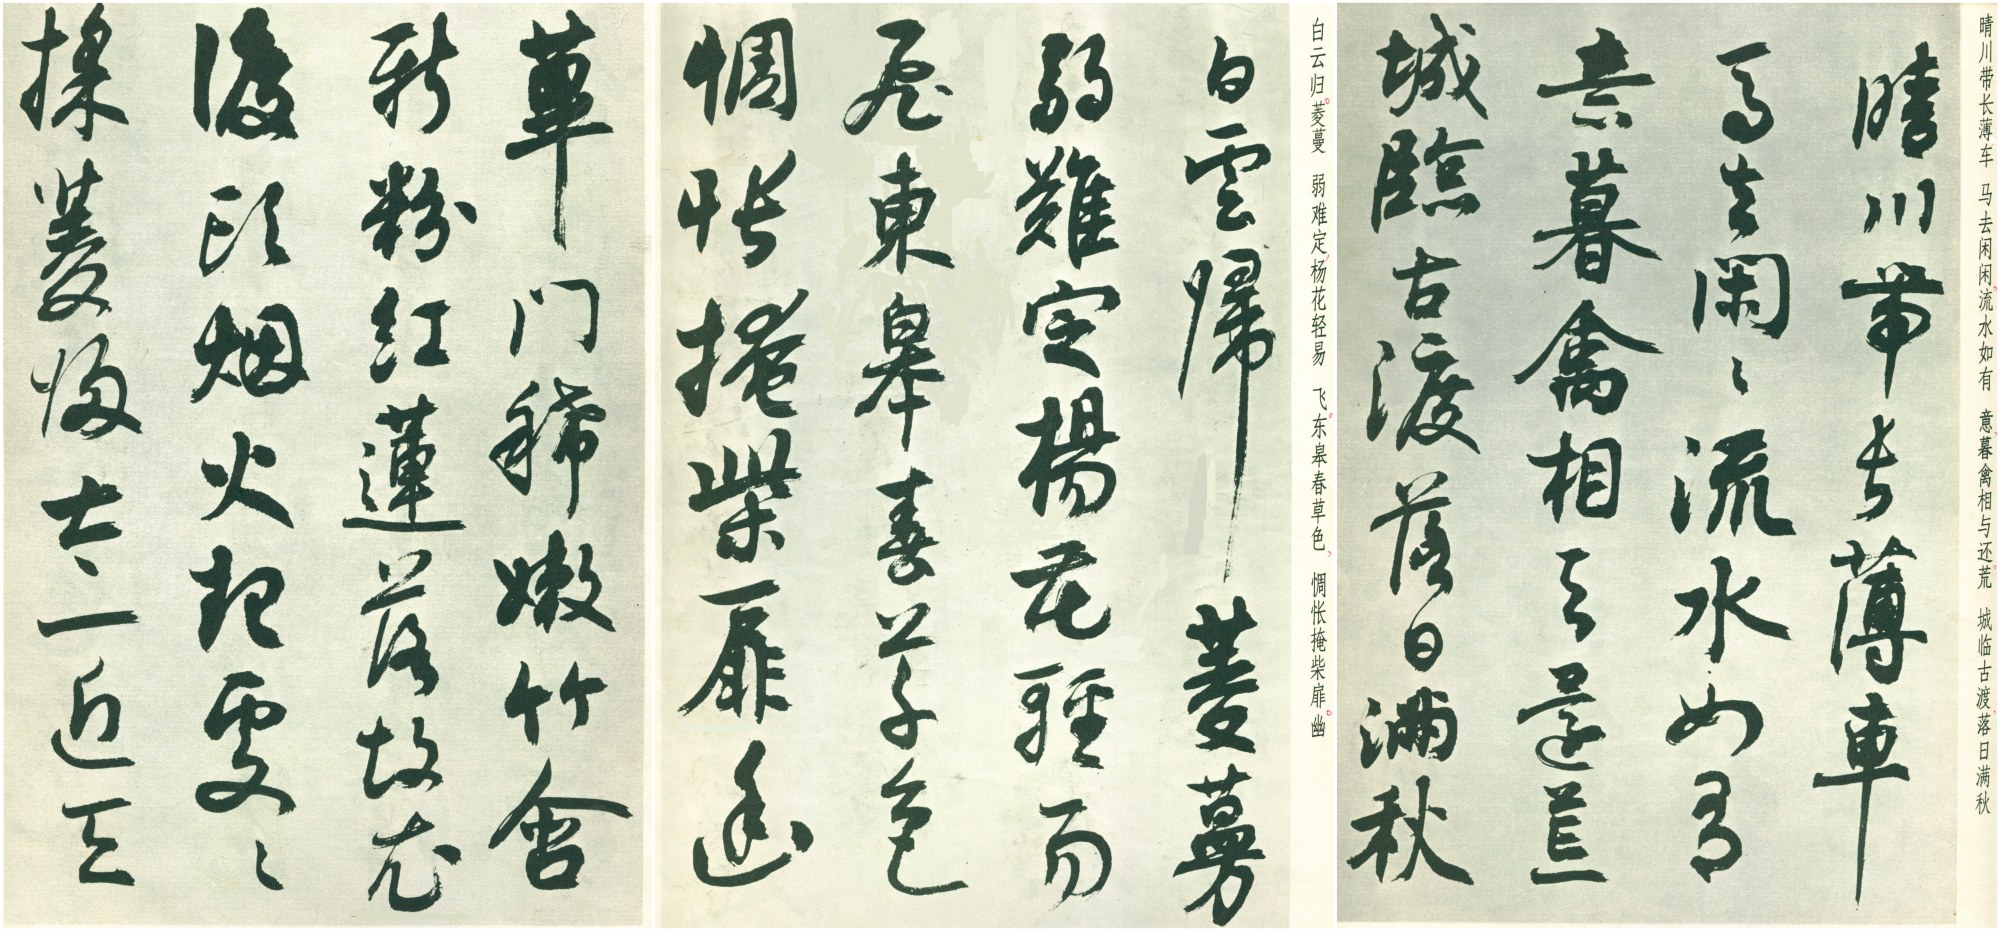 晴川带长薄车 马去闲闲流水如有 意暮禽相与还荒 城临古渡落日满秋
晴川帶長薄車
馬去閑々流水如有
意暮禽相与還荒
城臨古渡落日滿秋
白云归菱蔓 弱难定杨花轻易 飞东皋春草色 惆怅掩柴扉幽
白雲歸菱蔓
弱難定楊花輕易
飛東皋春草色
惆悵掩柴扉幽
蓽門稀嫩竹含
新粉紅蓮落故衣
渡頭烟火起處々
採菱歸太一近天